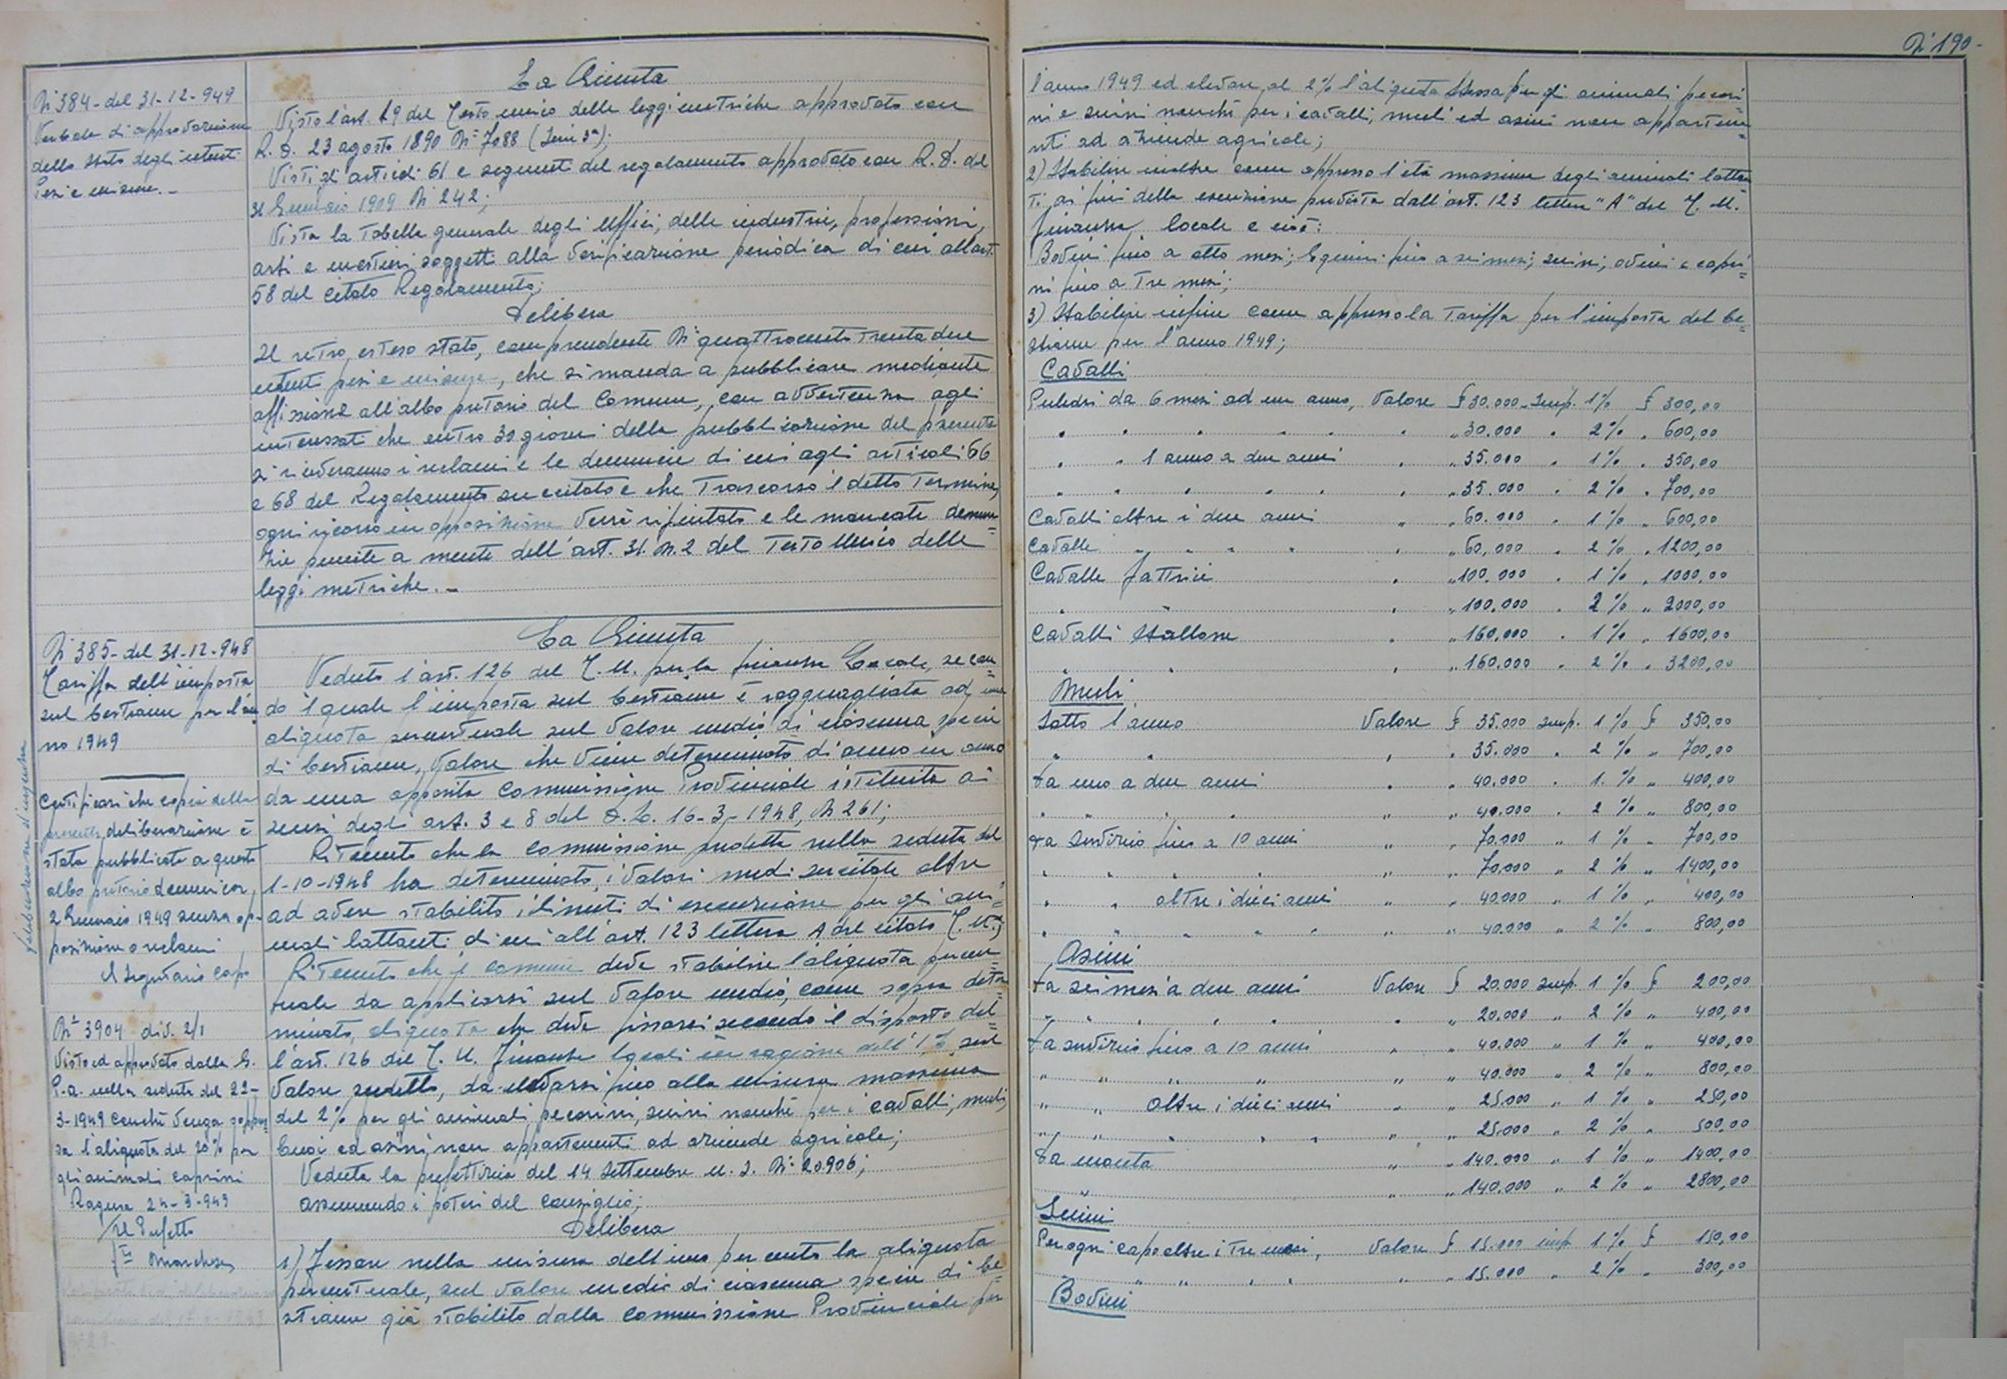 N° 190-
N° 384 - del 31-12-949
Verbale di approvazione
dello stato degli utenti
Pesi e misure.-
La Giunta
Visto l'art. 19 del Testo unico delle leggi metriche approvato con
R. D. 23 agosto 1890 N° 7088 (Serie 3ª);
Visti gli articoli 61 e seguenti del regolamento approvato con R. D. del
31 Gennaio 1909 N 242;
Vista la Tabella generale degli Uffici, delle industrie, professioni,
arti e mestieri soggetti alla Verificazione periodica di cui all'art.
58 del citato Regolamento;
Delibera
Il retro esteso stato, comprendente N° quattrocentotrentadue
utenti pesi e misure, che si manda a pubblicare mediante
affissione all'albo pretorio del Comune, con avvertenza agli
interessati che entro 30 giorni della pubblicazione del presente
si riceveranno i reclami e le denuncie di cui agli articoli 66
e 68 del Regolamento succitato e che Trascorso il detto Termine,
ogni ricorso in opposizione Verrà rifiutato e le mancate denun=
zie punite a mente dell'art. 31. N. 2 del Testo Unico delle
leggi metriche.-
N° 385 - del 31-12-948
Tariffa dell'imposta
sul bestiame per l'an
no 1949
Certificasi che copia della
presente deliberazione è
stata pubblicata a questo
albo pretorio domenica
2 Gennaio 1949 senza op-
posizione o reclami
Il Segretario Capo
N° 3904 div. 2/1
Visto ed approvato dalla G.
P. A. nella seduta del 22-
3-1949 cenchè venga soppres
sa l'aliquota del 20% per
gli animali caprini
Ragusa 24-3-949
Il Prefetto
La Giunta
Veduto l'art. 126 del T. U. per la finanza Locale, secon=
do il quale l'imposta sul bestiame è ragguagliata ad una
aliquota percentuale sul Valore medio di ciascuna specie
di bestiame, Valore che Viene determinato di anno in anno
da una apposita Commissione Provinciale istituita ai
sensi degli art. 3 e 8 del D. L. 16-3-1948, N 261;
Ritenuto che la Commissione predetta nella seduta del
1-10-1948 ha determinato, i Valori medi succitati oltre
ad avere stabilito i limiti di esenzione per gli ani=
mali lattanti di cui all'art. 123 lettera A del citato T. U.;
Ritenuto che il comune deve stabilire l'aliquota percen=
tuale da applicarsi sul Valore medio, come sopra deter=
minato, aliquota che deve fissarsi secondo il disposto del=
l'art. 126 del T. U. Finanza Locale in ragione dell'1% sul
Valore suddetto, da elevarsi fino alla misura massima
del 2% per gli animali pecorini, suini nonchè per i cavalli, muli,
buoi ed asini non appartenenti ad aziende agricole;
Veduta la prefettizia del 14 Settembre u. s. N° 20906;
Assumendo i poteri del Consiglio;
Delibera
1) Fissare nella misura dell'uno per cento la aliquota
percentuale, sul Valore medio di ciascuna specie di be=
stiame già stabilito dalla Commissione Provinciale per
l'anno 1949 ed elevare al 2% l'aliquota stessa per gli animali pecori=
ni e suini nonchè per i cavalli, muli ed asini non appartene=
nti ad aziende agricole;
2) Stabilire inoltre come appresso l'età massima degli animali lattan
ti, ai fini della esenzione prevista dall'art. 123 lettera "A" del T. U.
finanza locale e cioè:
Bovini fino a otto mesi; Equini fino a sei mesi; suini, ovini e capri=
ni fino a Tre mesi;
3) Stabilire infine come appresso la Tariffa per l'imposta del be=
stiame per l'anno 1949;
Cavalli
Puledri da 6 mesi ad un anno, Valore £ 30.000 - Imp. 1% £ 300,00
" " " " " " " " 30.000 " 2% " 600,00
" " 1 anno a due anni " " 35.000 " 1% " 350,00
" " " " " " " " 35.000 " 2% " 700,00
Cavalli oltre i due anni " " 60.000 " 1% " 600,00
Cavalle " " " " " " 60,000 " 2% " 1200,00
Cavalle fattrici " " 100.000 " 1% " 1000,00
" " " " 100.000 " 2% " 2000,00
Cavalli Stallone " 160.000 " 1% " 1600,00
" " " " 160.000 " 2% " 3200,00
Muli
Sotto l'anno Valore £ 35.000 imp. 1% £ 350,00
" " " " 35.000 " 2% " 700,00
Da uno a due anni " " 40.000 " 1% " 400,00
" " " " " " 40.000 " 2% " 800,00
Da servizio fino a 10 anni " " 70.000 " 1% " 700,00
" " " " " " 70.000 " 2% " 1400,00
" " oltre i dieci anni " " 40.000 " 1% " 400,00
" " " " " " " 40.000 " 2% " 800,00
Asini
Da sei mesi a due anni Valore £ 20.000 imp. 1% £ 200,00
" " " " " " " 20.000 " 2% " 400,00
Da servizio fino a 10 anni " " 40.000 " 1% " 400,00
" " " " " " 40.000 " 2% " 800,00
" " oltre i dieci anni " " 25.000 " 1% " 250,00
" " " " " " " 25.000 " 2% " 500,00
Da monta " " 140.000 " 1% " 1400,00
" " " 140.000 " 2% " 2800,00
Suini
Per ogni capo oltre i Tre mesi, Valore £ 15.000 imp. 1% £ 150,00
" " " " " " " 15.000 " 2% " 300,00
Bovini